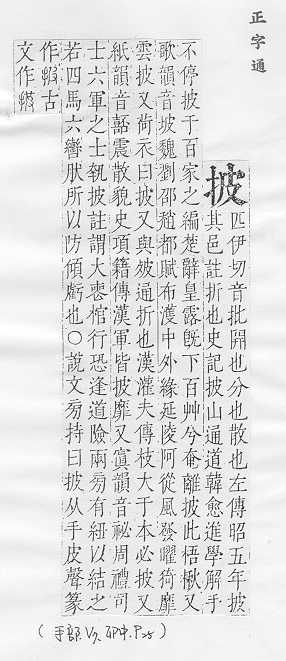 正字通
披
匹伊切音批開也分也散也左傳昭五年披
其邑註折也史記披山通道韓愈進學解手
不停披于百家之編楚辭皇露旣下百艸兮奄離披此梧楸又
歌韻音坡魏劉邵趙都賦布濩中外緣延陵阿從風發曜猗靡
雲披又荷衣曰披又與㱟通折也漢灌夫傳枝大于本必披又
紙韻音嚭震散貌史項籍傳漢軍皆披靡又寘韻音祕周禮司
士六軍之士執披註謂大喪棺行恐逢道險兩旁有紐以結之
若四馬六轡肰所以防傾虧也〇說文旁持曰披从手皮聲篆
作
古
文作
(手部.1/3, 卯中.P25)